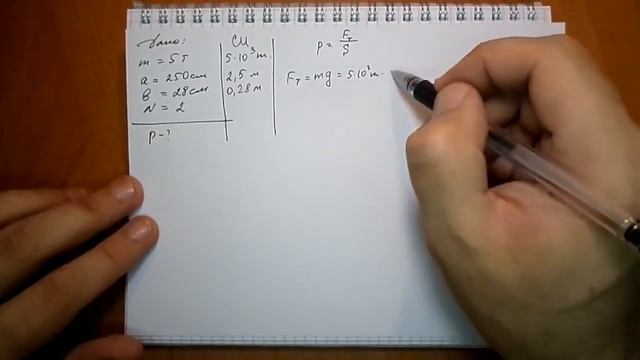 Дано:
m = 5т
a = 250 см
в = 28 см
N = 2
p - ?
СИ
5·10³ т.
2,5 м
0,28 м
p = Fт / S
Fт = mg = 5·10³ т·